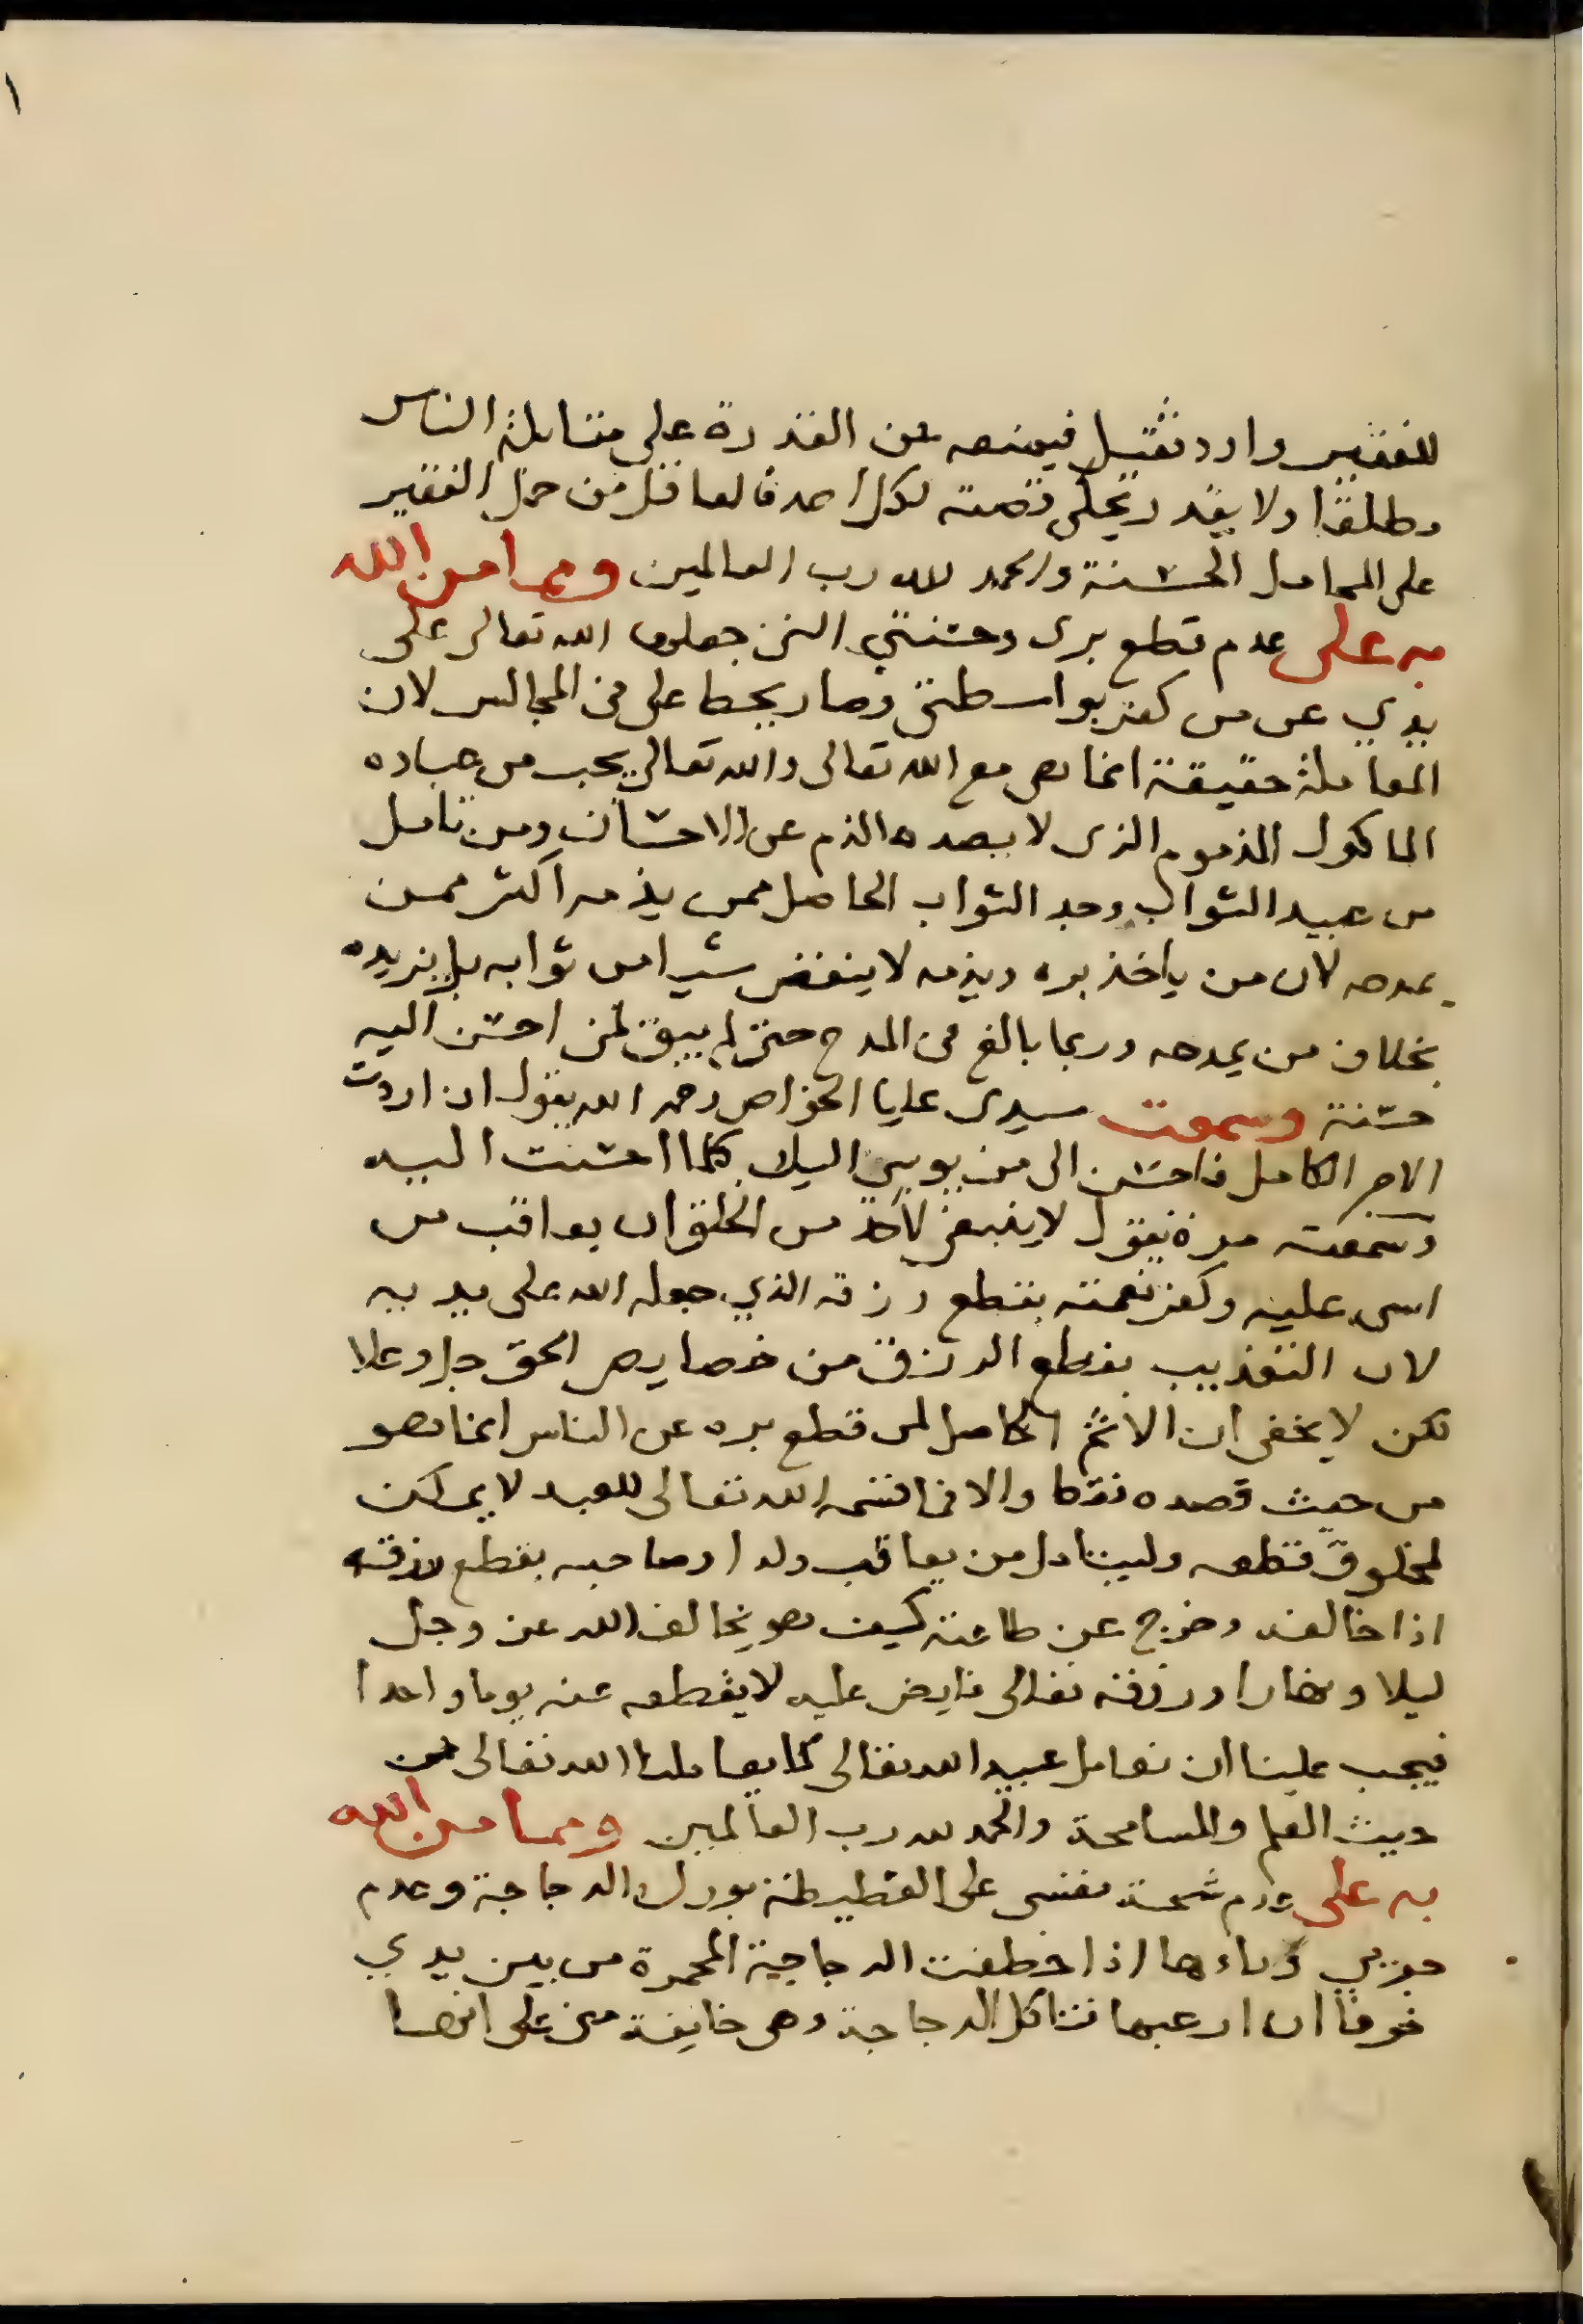 ١
للفقير وارد ثقيل فيمنعه عن القدرة على مقابلة الناس
مطلقا ولا يقدر يحكى قصته لكل احد فالعاقل من حمل الفقير
على المحامل الحسنة والحمد لله رب العالمين ومما من الله
به على عدم قطع برى وحسنتي التى جعلها الله تعالى على
يدي عن من كفر بواسطتى وصار يحط على فى المجالس لان
المعاملة حقيقة انما هى مع الله تعالى والله تعالى يحب من عباده
الماكول المذموم الذى لا يصده الذم عن الاحسان ومن تامل
من عبيد الثواب وجد الثواب الحاصل ممن يذمه اكثر ممن
يمدحه لان من ياخذ بره ويذمه لا ينقض شيا من ثوابه بل يزيده
بخلاف من يمدحه وربما بالغ فى المدح حتى لم يبق لمن احسن اليه
حسنة وسمعت سيدى عليا الخواص رحمه الله يقول ان اردت
الاجر الكامل فاحسن الى من يوسي اليك كلما احسنت اليه
وسمعته مرة يقول لا ينبغى لاحد من الخلق ان يعاقب من
اسى عليه وكفر نعمته بقطع رزقه الذي جعله الله على يديه
لان التعذيب بقطع الرزق من خصايص الحق جل وعلا
لكن لا يخفى ان الاثم الحاصل لمن قطع بره عن الناس انما هو
من حيث قصده فقط والا فما قسمه الله تعالى للعبد لا يمكن
لمخلوق قطعه وليتامل من يعاقب ولدا او صاحبه بقطع رزقه
اذا خالفه وخرج عن طاعته كيف هو يخالف الله عز وجل
ليلا ونهارا ورزقه تعالى فايض عليه لا يقطعه عنه يوما واحدا
فيجب علينا ان نعامل عبيد الله تعالى كما يعاملنا الله تعالى من
حيث الحلم والمسامحة والحمد لله رب العالمين ومما من الله
به على عدم شحة نفسى على القطيطة بورك الدجاجة وعدم
جريي وراءها اذا خطفت الدجاجة المحمرة من بين يدي
خوفا ان ارعبها فتاكل الدجاجة وهى خايفة منى على انها